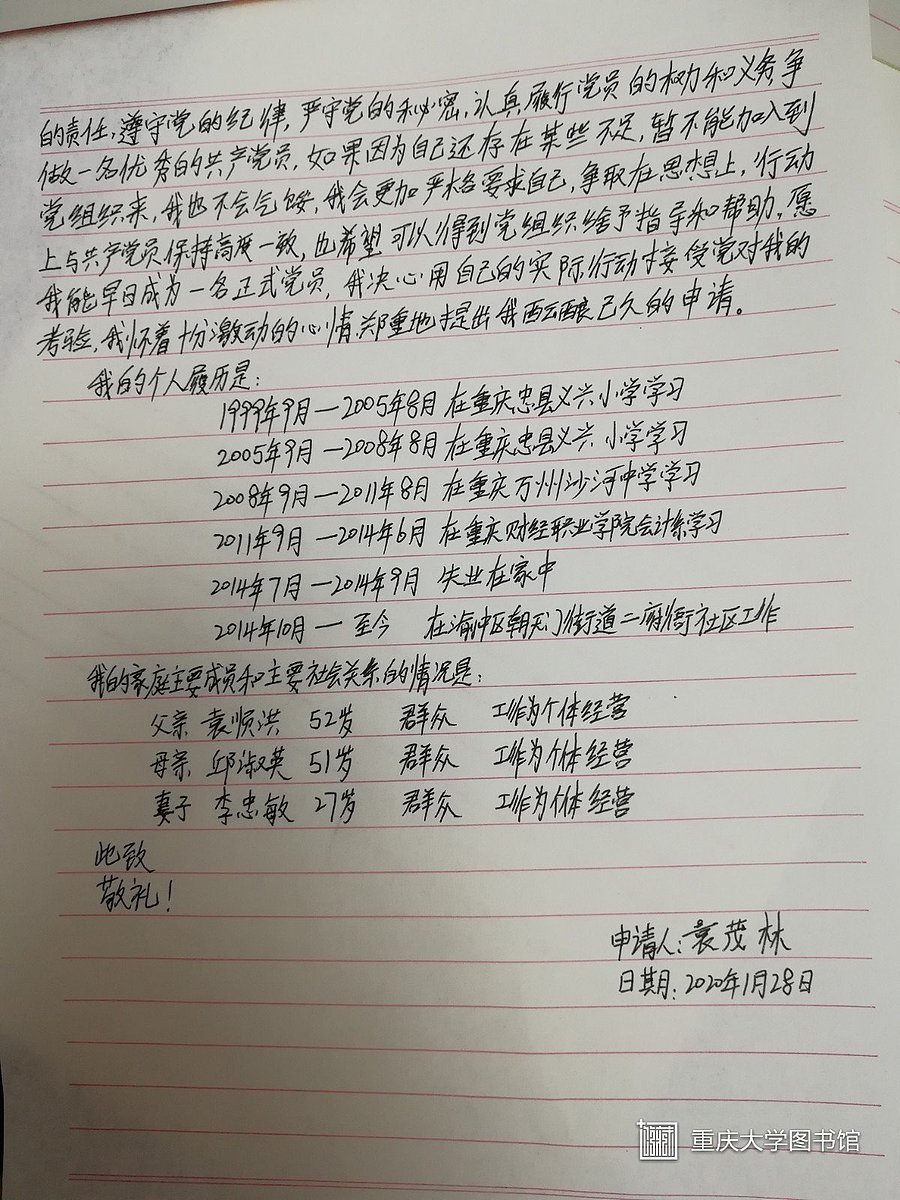 的责任,遵守党的纪律,严守党的秘密,认真履行党员的权力和义务,争
做一名优秀的共产党员,如果因为自己还存在某些不足,暂不能加入到
党组织来,我也不会气馁,我会更加严格要求自己,争取在思想上,行动
上与共产党员保持高度一致,也希望可以得到党组织给予指导和帮助,愿
我能早日成为一名正式党员,我决心用自己的实际行动接受党对我的
考验,我怀着十分激动的心情,郑重地提出我酝酿已久的申请。
我的个人履历是:
1999年9月—2005年8月 在重庆忠县义兴小学学习
2005年9月—2008年8月 在重庆忠县义兴小学学习
2008年9月—2011年8月 在重庆万州沙河中学学习
2011年9月—2014年6月 在重庆财经职业学院会计系学习
2014年7月—2014年9月 失业在家中
2014年10月—至今 在渝中区朝天门街道二府衙社区工作
我的家庭主要成员和主要社会关系的情况是:
父亲 袁顺洪 52岁 群众 工作为个体经营
母亲 邱淑英 51岁 群众 工作为个体经营
妻子 李忠敏 27岁 群众 工作为个体经营
此致
敬礼!
申请人:袁茂林
日期:2020年1月28日
重庆大学图书馆